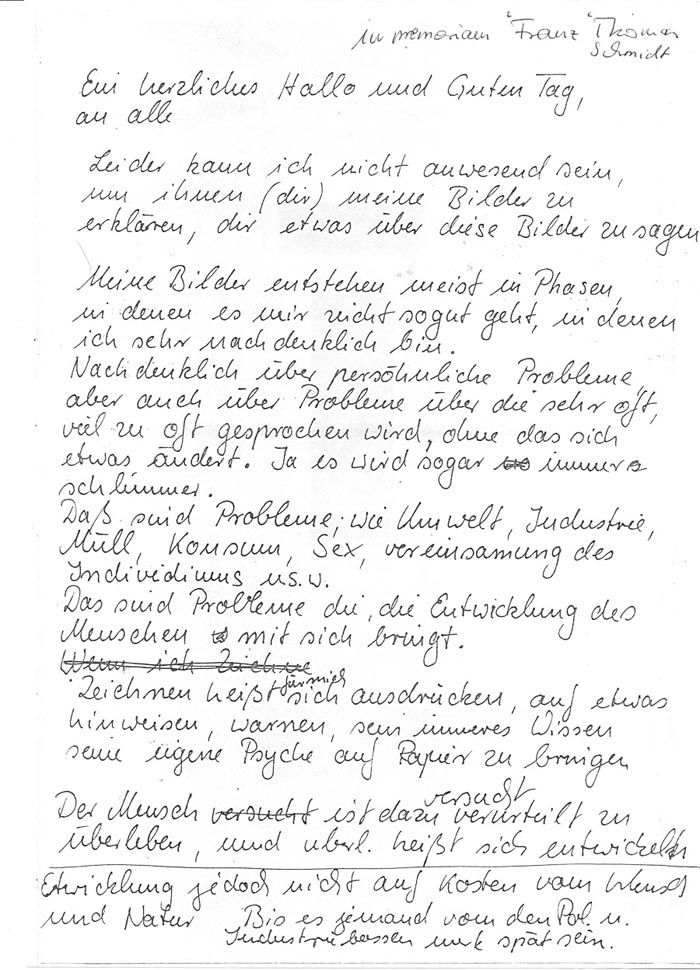 in memoriam "Franz" Thomas
Schmidt
Ein herzliches Hallo und Guten Tag,
an alle
Leider kann ich nicht anwesend sein,
um ihnen (dir) meine Bilder zu
erklären, dir etwas über diese Bilder zu sagen
Meine Bilder entstehen meist in Phasen,
in denen es mir nicht sogut geht, in denen
ich sehr nachdenklich bin.
Nachdenklich über persöhnliche Probleme,
aber auch über Probleme über die sehr oft,
viel zu oft gesprochen wird, ohne das sich
etwas ändert. Ja es wird sogar immer
schlimmer.
Daß sind Probleme, wie Umwelt, Industrie,
Müll, Konsum, Sex, vereinsamung des
Individiums u.s.w.
Das sind Probleme die, die Entwicklung des
Menschen mit sich bringt.
Wenn ich Zeichne
Zeichnen heißt für mich sich ausdrücken, auf etwas
hinweisen, warnen, sein inneres Wissen
seine eigene Psyche auf Papier zu bringen
Der Mensch versucht ist dazu versucht verurteilt zu
überleben, und überl. heißt sich entwickeln
Etwicklung jedoch nicht auf Kosten vom Mensch
und Natur Bis es jemand von den Pol. u.
Industriebossen merk spät sein.